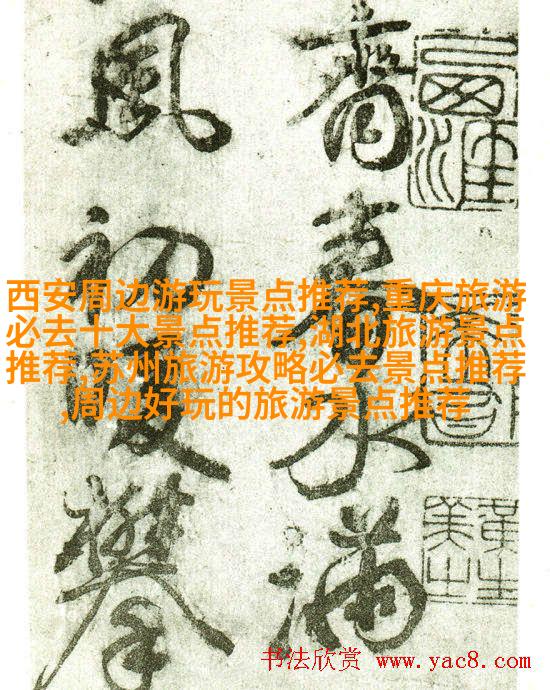 齋水滿
風初暖攀
西安周边游玩景点推荐,重庆旅游
必去十大景点推荐,湖北旅游景点
推荐,苏州旅游攻略必去景点推荐
,周边好玩的旅游景点推荐
书法欣赏 www.yac8.com